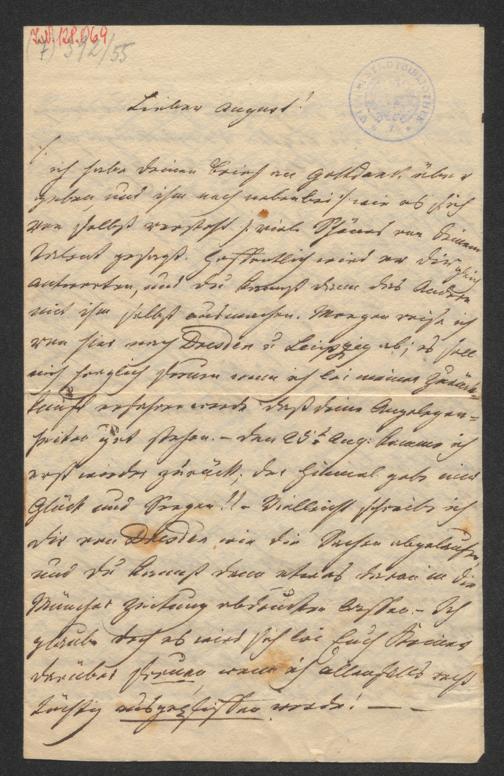 I.N. 128.069
592/55
WIENER STADTBIBLIOTHEK
Lieber August!
ich habe deinen Brief an Gottdank über-
geben und ihm noch nebenbei /: wie es sich
von selbst versteht :/ viel Schönes von deinem
Talent gesagt. Hoffentlich wird er dir gleich
antworten, und du kannst dann das Andere
mit ihm selbst ausmachen. Morgen reise ich
von hier nach Dresden u Leipzig ab; es soll
mich herzlich freuen wenn ich bei meiner Zurück-
kunft erfahren werde daß deine Angelegen-
heiten gut stehen. – Den 25t Aug: komme ich
erst wieder zurück; der Himmel gebe mir
Glück und Seegen!! – Vielleicht schreibe ich
dir von Dresden wie die Sachen abgelaufen,
und du kannst dann etwas davon in die
Münchner Zeitung abdrucken lassen. – Ich
glaube doch es wird sich bei Euch Keiner
darüber freuen wenn ich allenfalls recht
tüchtig ausgepfiffen werde! — —